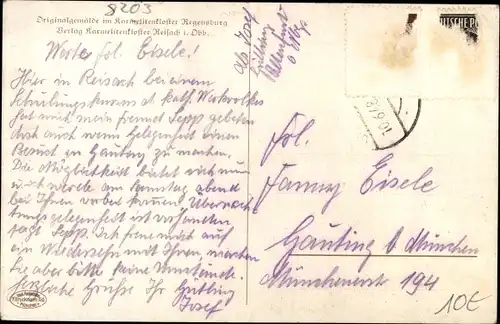 8203
Originalgemälde im Karmelitenkloster Regensburg
Verlag Karmelitenkloster Reisach i. Obb.
Werte Frl. Eisele!
Hier in Reisach bei einem
Schulungskurs des kath. Werkvolkes
hat mich mein Freund Sepp gebeten
doch auch wenn Gelegenheit einen
Besuch in Gauting zu machen.
Die Möglichkeit bietet sich nun
u. ich werde am Sonntag abend
bei Ihnen vorbei kommen. Übernach-
tungsgelegenheit ist vorhanden
sagt Sepp. Ich freue mich auf
ein Wiedersehn mit Ihnen, machen
Sie aber bitte keine Umstände.
Herzliche Grüsse Ihr Gütling
Josef
Abs. Josef
Gütling
DEUTSCHE PO
10.6.
Frl.
Fanny Eisele
Gauting b München
Münchenerstr 194
10€